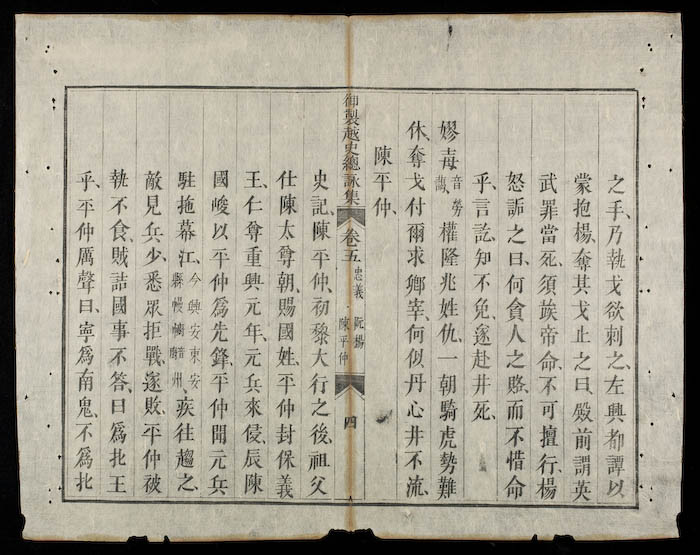 之手、乃執戈欲刺之、左興都譚以
蒙抱楊、奪其戈止之曰、殿前謂英
武罪當死、須竢帝命、不可擅行、楊
怒詬之曰、何貪人之賂、而不惜命
乎、言訖、知不免、遂赴井死、
嫪毒音勞藹權隆兆姓仇、一朝騎虎勢難
休、奪戈付爾求鄉宰、何似丹心井不流、
陳平仲、
御製越史總詠集 卷之五 忠義 阮楊 陳平仲 四
史記、陳平仲、初黎大行之後、祖父
仕陳太尊朝、賜國姓、平仲封保義
王、仁尊重興元年、元兵來侵、辰陳
國峻以平仲爲先鋒、平仲聞元兵
駐拖幕江、今興安東安縣州疾往趨之、
敵見兵少、悉眾拒戰、遂敗、平仲被
執不食、賊詰國事不答、曰爲北王
乎、平仲厲聲曰、寧爲南鬼、不爲北